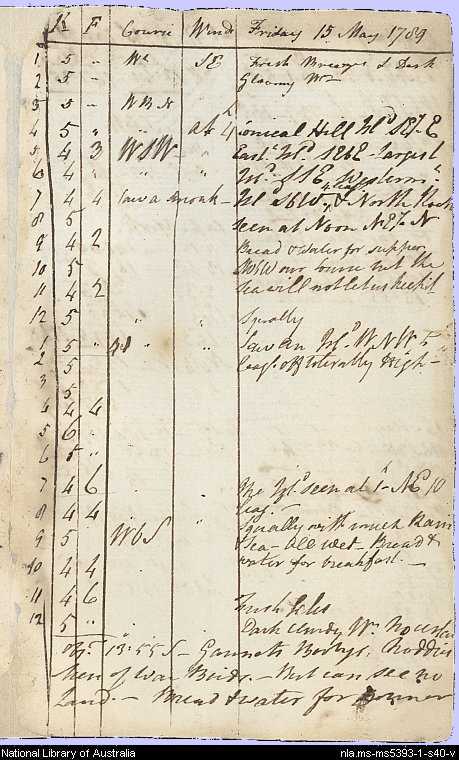 K F Course Winds Friday 15 May 1789
1 5 " Wt SE Fresh Breezes & Dark
2 5 - Gloomy Wr
3 5 - WBN
4 5 " " at 4h Conical Hill Isd
5 4 3 WSW East. Isd largest
6 4 " " " Isd SSE Western
7 4 4 saw a smoak - Isd & North Rock
8 5 seen at Noon NE½N
9 4 2 Bread & water for supper
10 5 WSW our Course but the
11 4 2 sea will not let us keep it
12 5 " " Squally
1 5 " " Saw an Isd WNW 5
2 5 leags. off tolerably High -
3 5
4 4 4
5 6 "
6 5 "
7 4 6 The Isd seen at 1 - NE 10
8 4 4 leag. -
9 5 WBS " Squally with much Rain
& Sea - All wet - Bread &
10 4 4 water for breakfast. -
11 4 6 Fresh Gales
12 5 " Dark Cloudy Wr.
13°:55 S - Gannets Boobys, Noddies
Men of War Birds. - But can see no
Land. - Bread & water for Dinner
National Library of Australia nla.ms-ms5393-1-s40-v